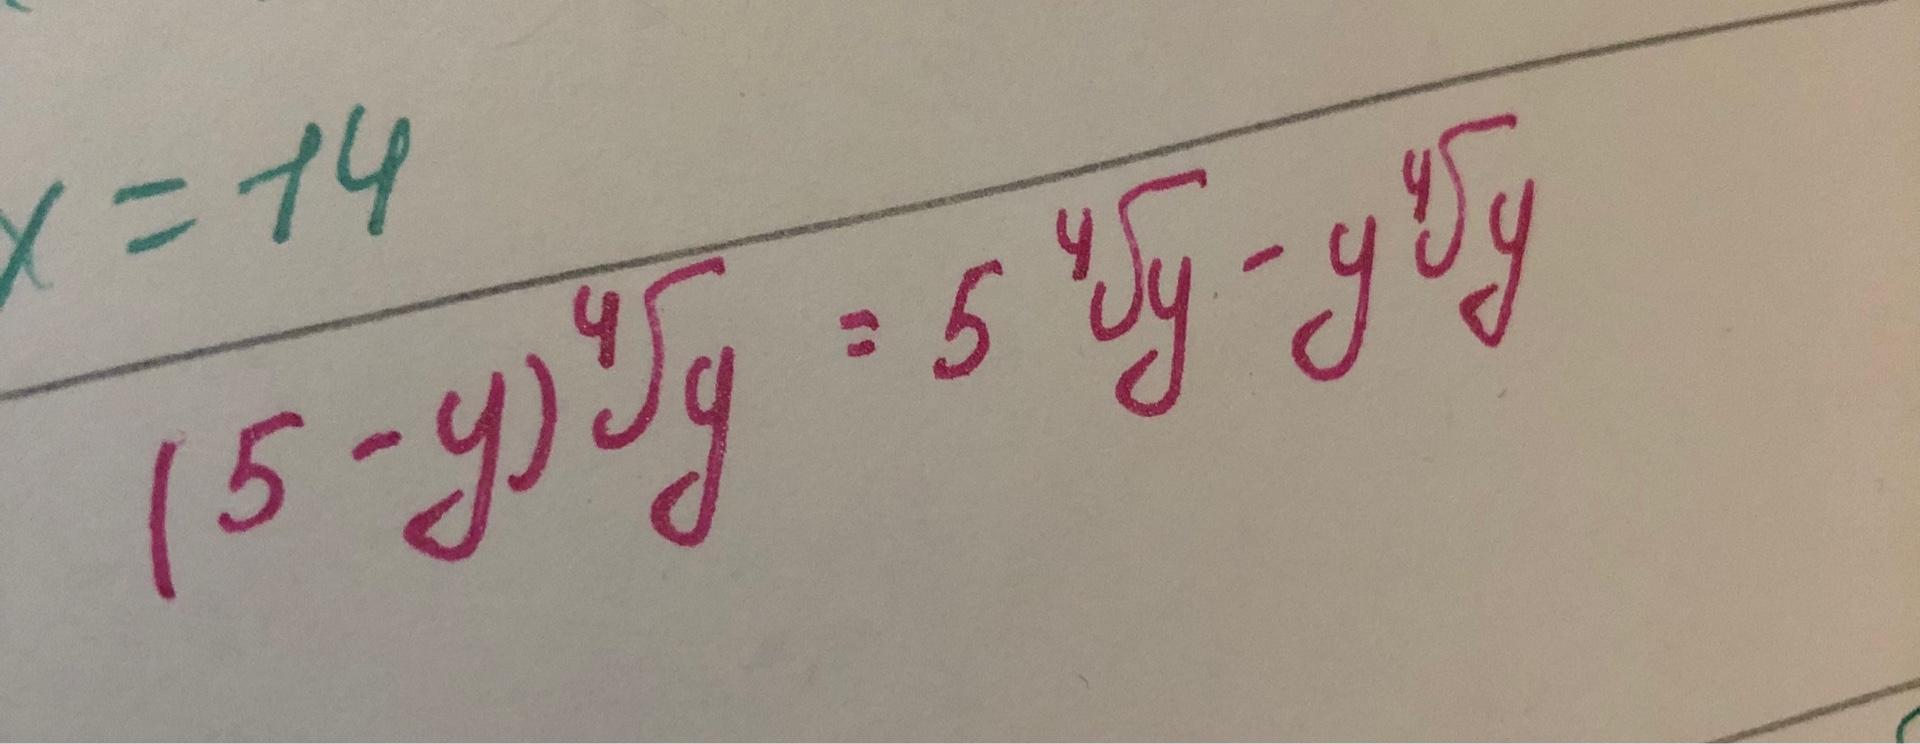 x = 14
(5 - y) ⁴√y = 5 ⁴√y - y ⁴√y